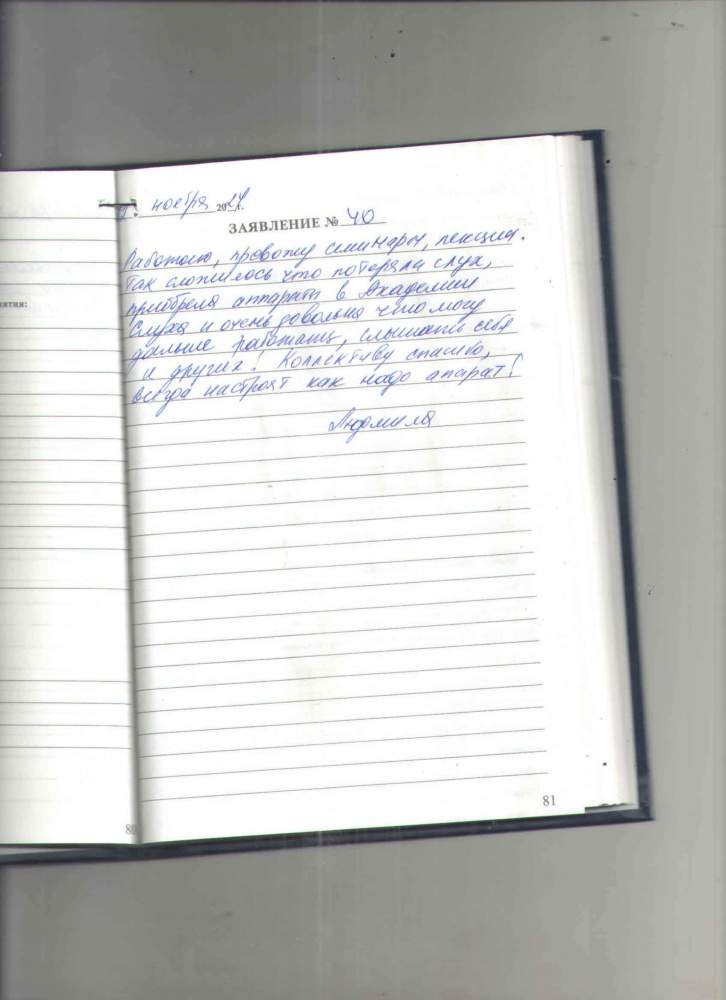 ноября 2024 г.
ЗАЯВЛЕНИЕ № 40
Работаю, провожу семинары, лекции.
Так сложилось что потеряла слух,
приобрела аппараты в Академии
Слуха и очень довольна что могу
дальше работать, слышать себя
и других! Коллективу спасибо,
всегда настроят как надо апарат!
Людмила
ятия:
8
81